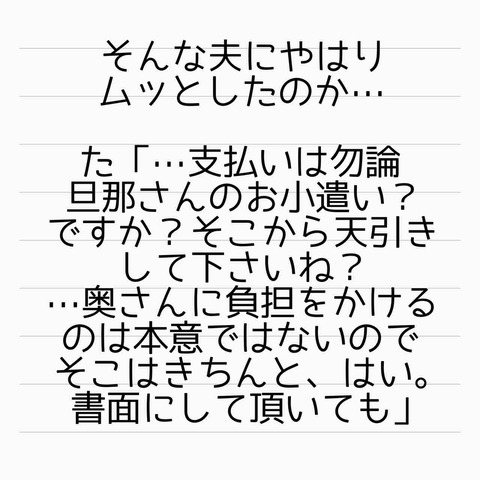 そんな夫にやはり
ムッとしたのか…
た「…支払いは勿論
旦那さんのお小遣い？
ですか？そこから天引き
して下さいね？
…奥さんに負担をかける
のは本意ではないので
そこはきちんと、はい。
書面にして頂いても」